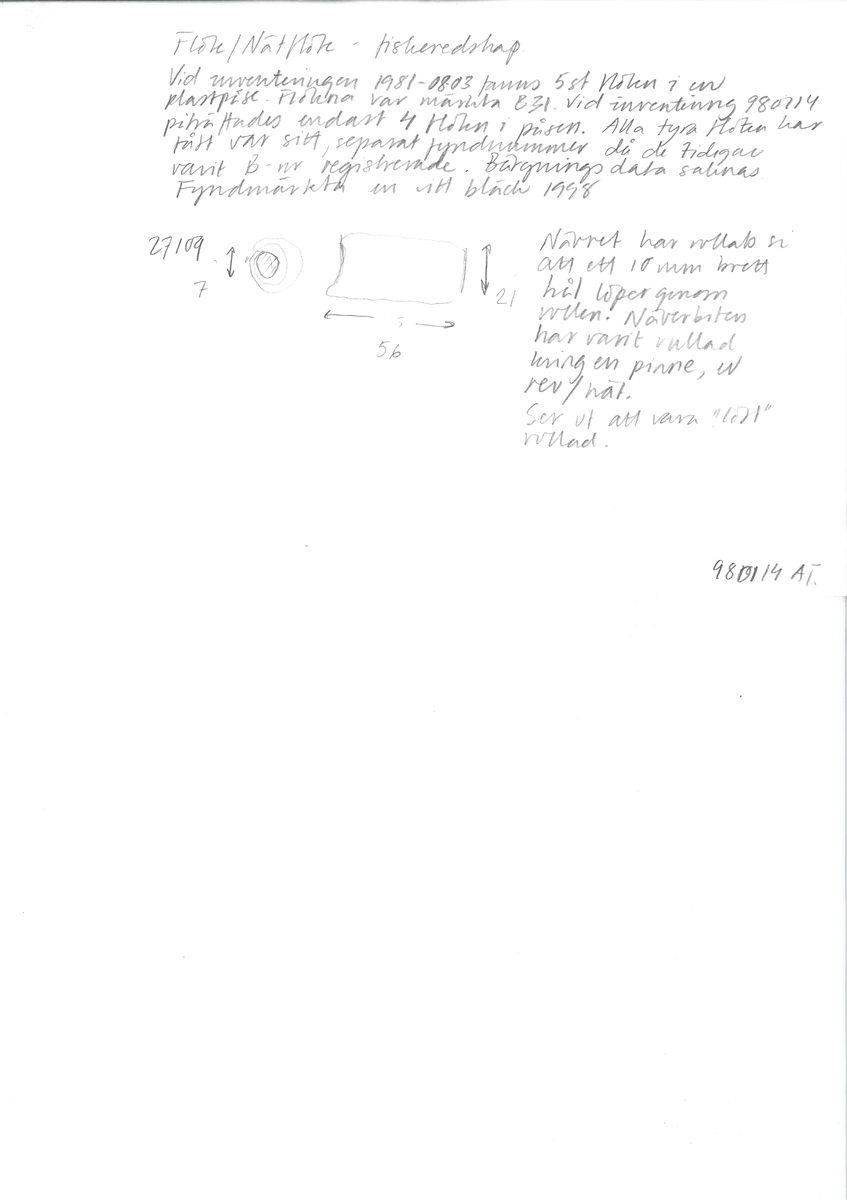 Flöte/Nätflöte - fiskeredskap
Vid inventeringen 1981-0803 fanns 5 st flöten i en
plastpåse. Flötena var märkta B31. Vid inventering 980114
påträffades endast 4 flöten i påsen. Alla fyra flöten har
fått var sitt, separat fyndnummer då de tidigare
varit B-nr registrerade. Bärgningsdata saknas
Fyndmärkta en vitt bläck 1998
27109
7
21
56
Nävret har rullats så
att ett 10 mm brett
hål löper genom
rullen. Näverbiten
har varit rullad
kring en pinne, el
rev/nät.
Ser ut att vara "löst"
rullad.
980114 AT.